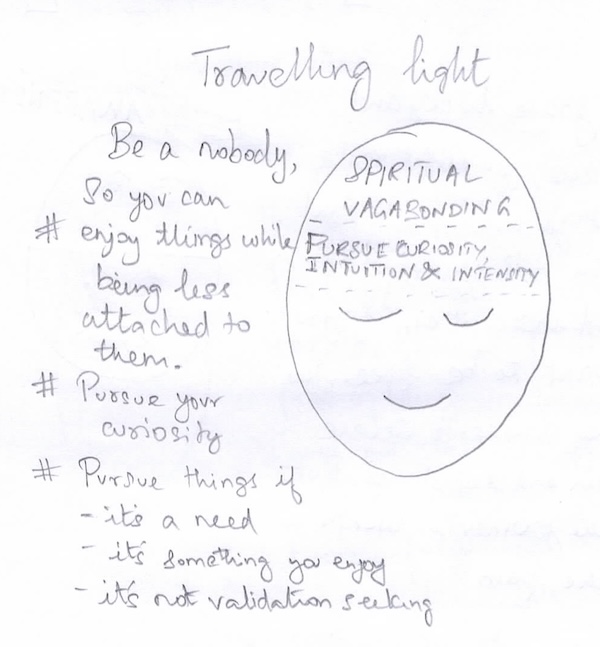 Travelling light
Be a nobody,
So you can
# enjoy things while
being less
attached to
them.
# Pursue your
curiosity
# Pursue things if
- it's a need
- it's something you enjoy
- it's not validation seeking
SPIRITUAL
VAGABONDING
PURSUE CURIOSITY,
INTUITION & INTENSITY